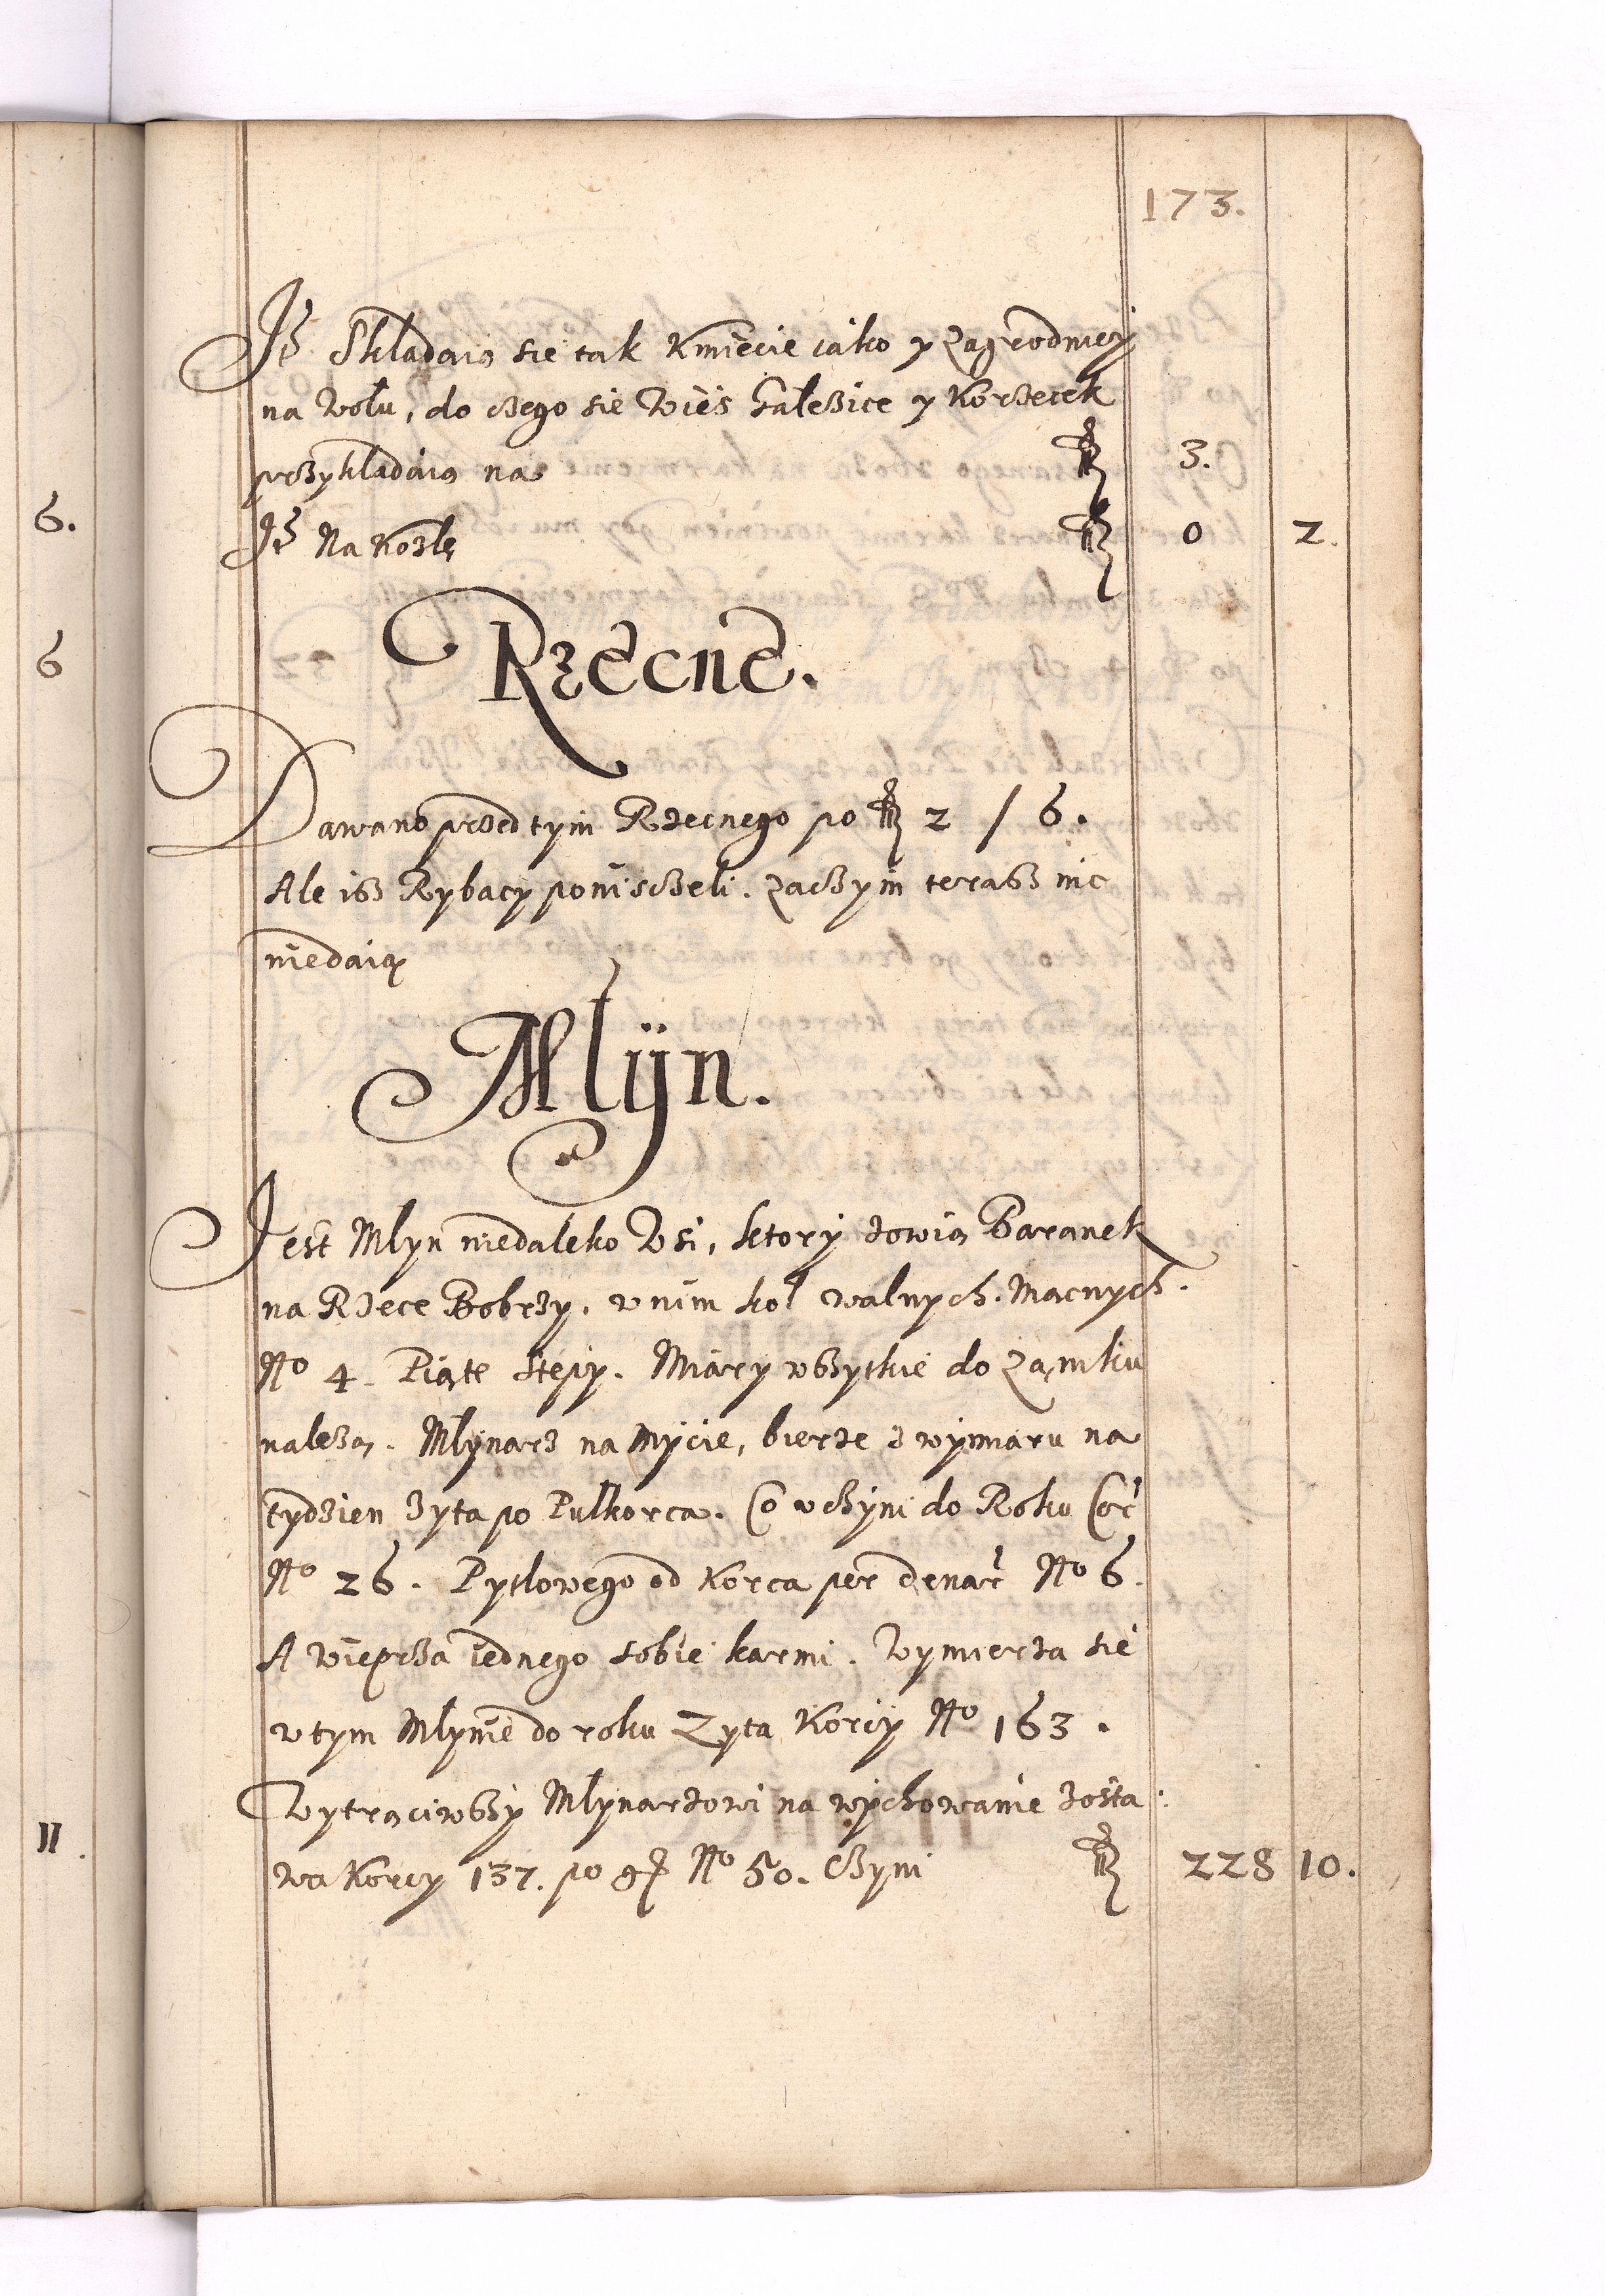 173.
Itē Składaią się tak Kmiecie iako y Zagrodnicy
na Wołu, do czego się Wieś Gałęzice y Korzecek
przykładaią na fl 3.
Itē Na Kozlę fl 0 2.
Rzecne.
Dawano przed tym Rzecznego po fl 2 / 6.
Ale isz Rybacy poniszczeli. Zaczym terasz nic
niedaią
Młyn.
Jest Młyn niedaleko Wsi, ktory zowią Baranek
na Rzece Bobrzy. w nim koł walnych. Mącnych.
No 4. Piąte Stępy. Miary wszytkie do Zamku
naleza. Młynarz na Mycie, bierze z wymiaru na
tydzien zyta po Pułkorca. Co uczyni do Roku Cor
No 26. Pytlowego od Korca per denar No 6.
A wieprza iednego sobie karmi. Wymierza się
w tym Młynie do roku Zyta Korcy No 163.
Wytrąciwszy Młynarzowi na wychowanie zosta:
wa Korcy 137. po gr No 50. Czyni fl 228 10.
6.
6
11.